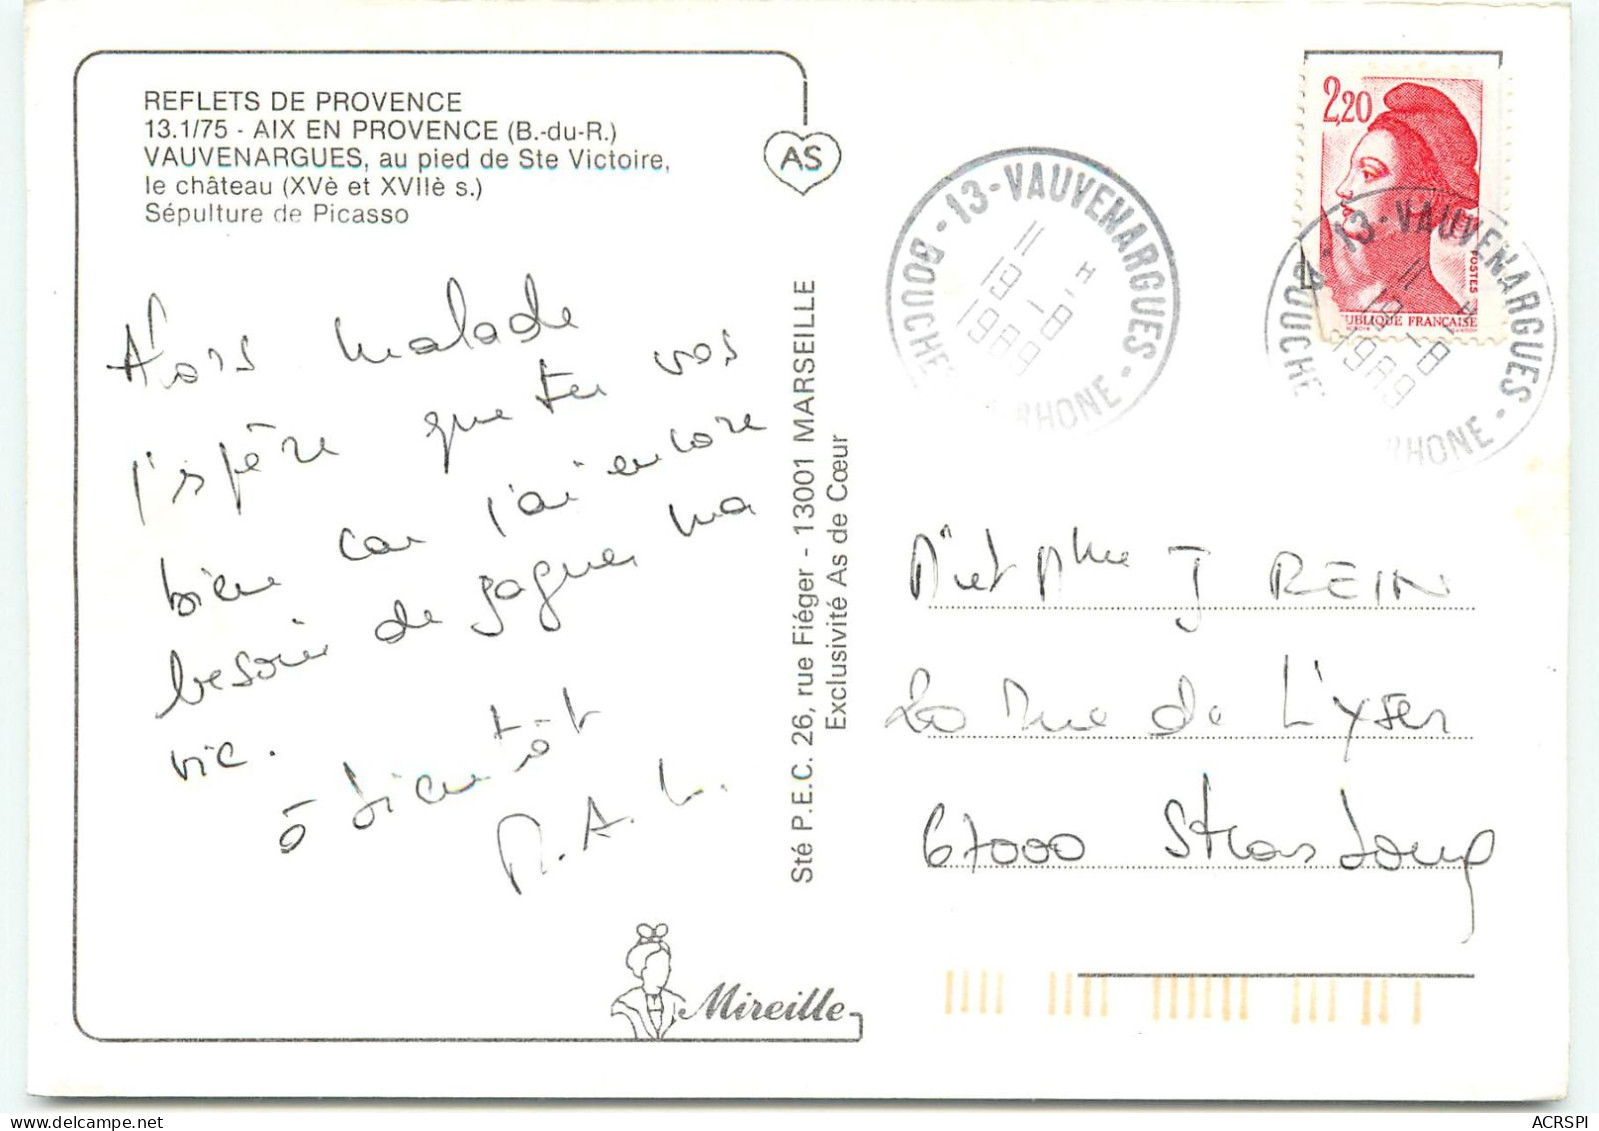 REFLETS DE PROVENCE
13.1/75 - AIX EN PROVENCE (B.-du-R.)
VAUVENARGUES, au pied de Ste Victoire,
le château (XVè et XVIIè s.)
Sépulture de Picasso
AS
Alors malade
j'espère que tu vas
bien car j'ai encore
besoin de gagner ma
vie.
à bientôt
Sté P.E.C. 26, rue Fiéger - 13001 MARSEILLE
Exclusivité As de Cœur
Mireille
2,20
POSTES
UBLIQUE FRANÇAISE
13-VAUVENARGUES - BOUCHE RHONE
11 H
19-8
1989
13-VAUVENARGUES - BOUCHE RHONE
11 H
19-8
1989
Mme J REIN
20 Rue de L'Yser
67000 Strasbourg
ACRSPI